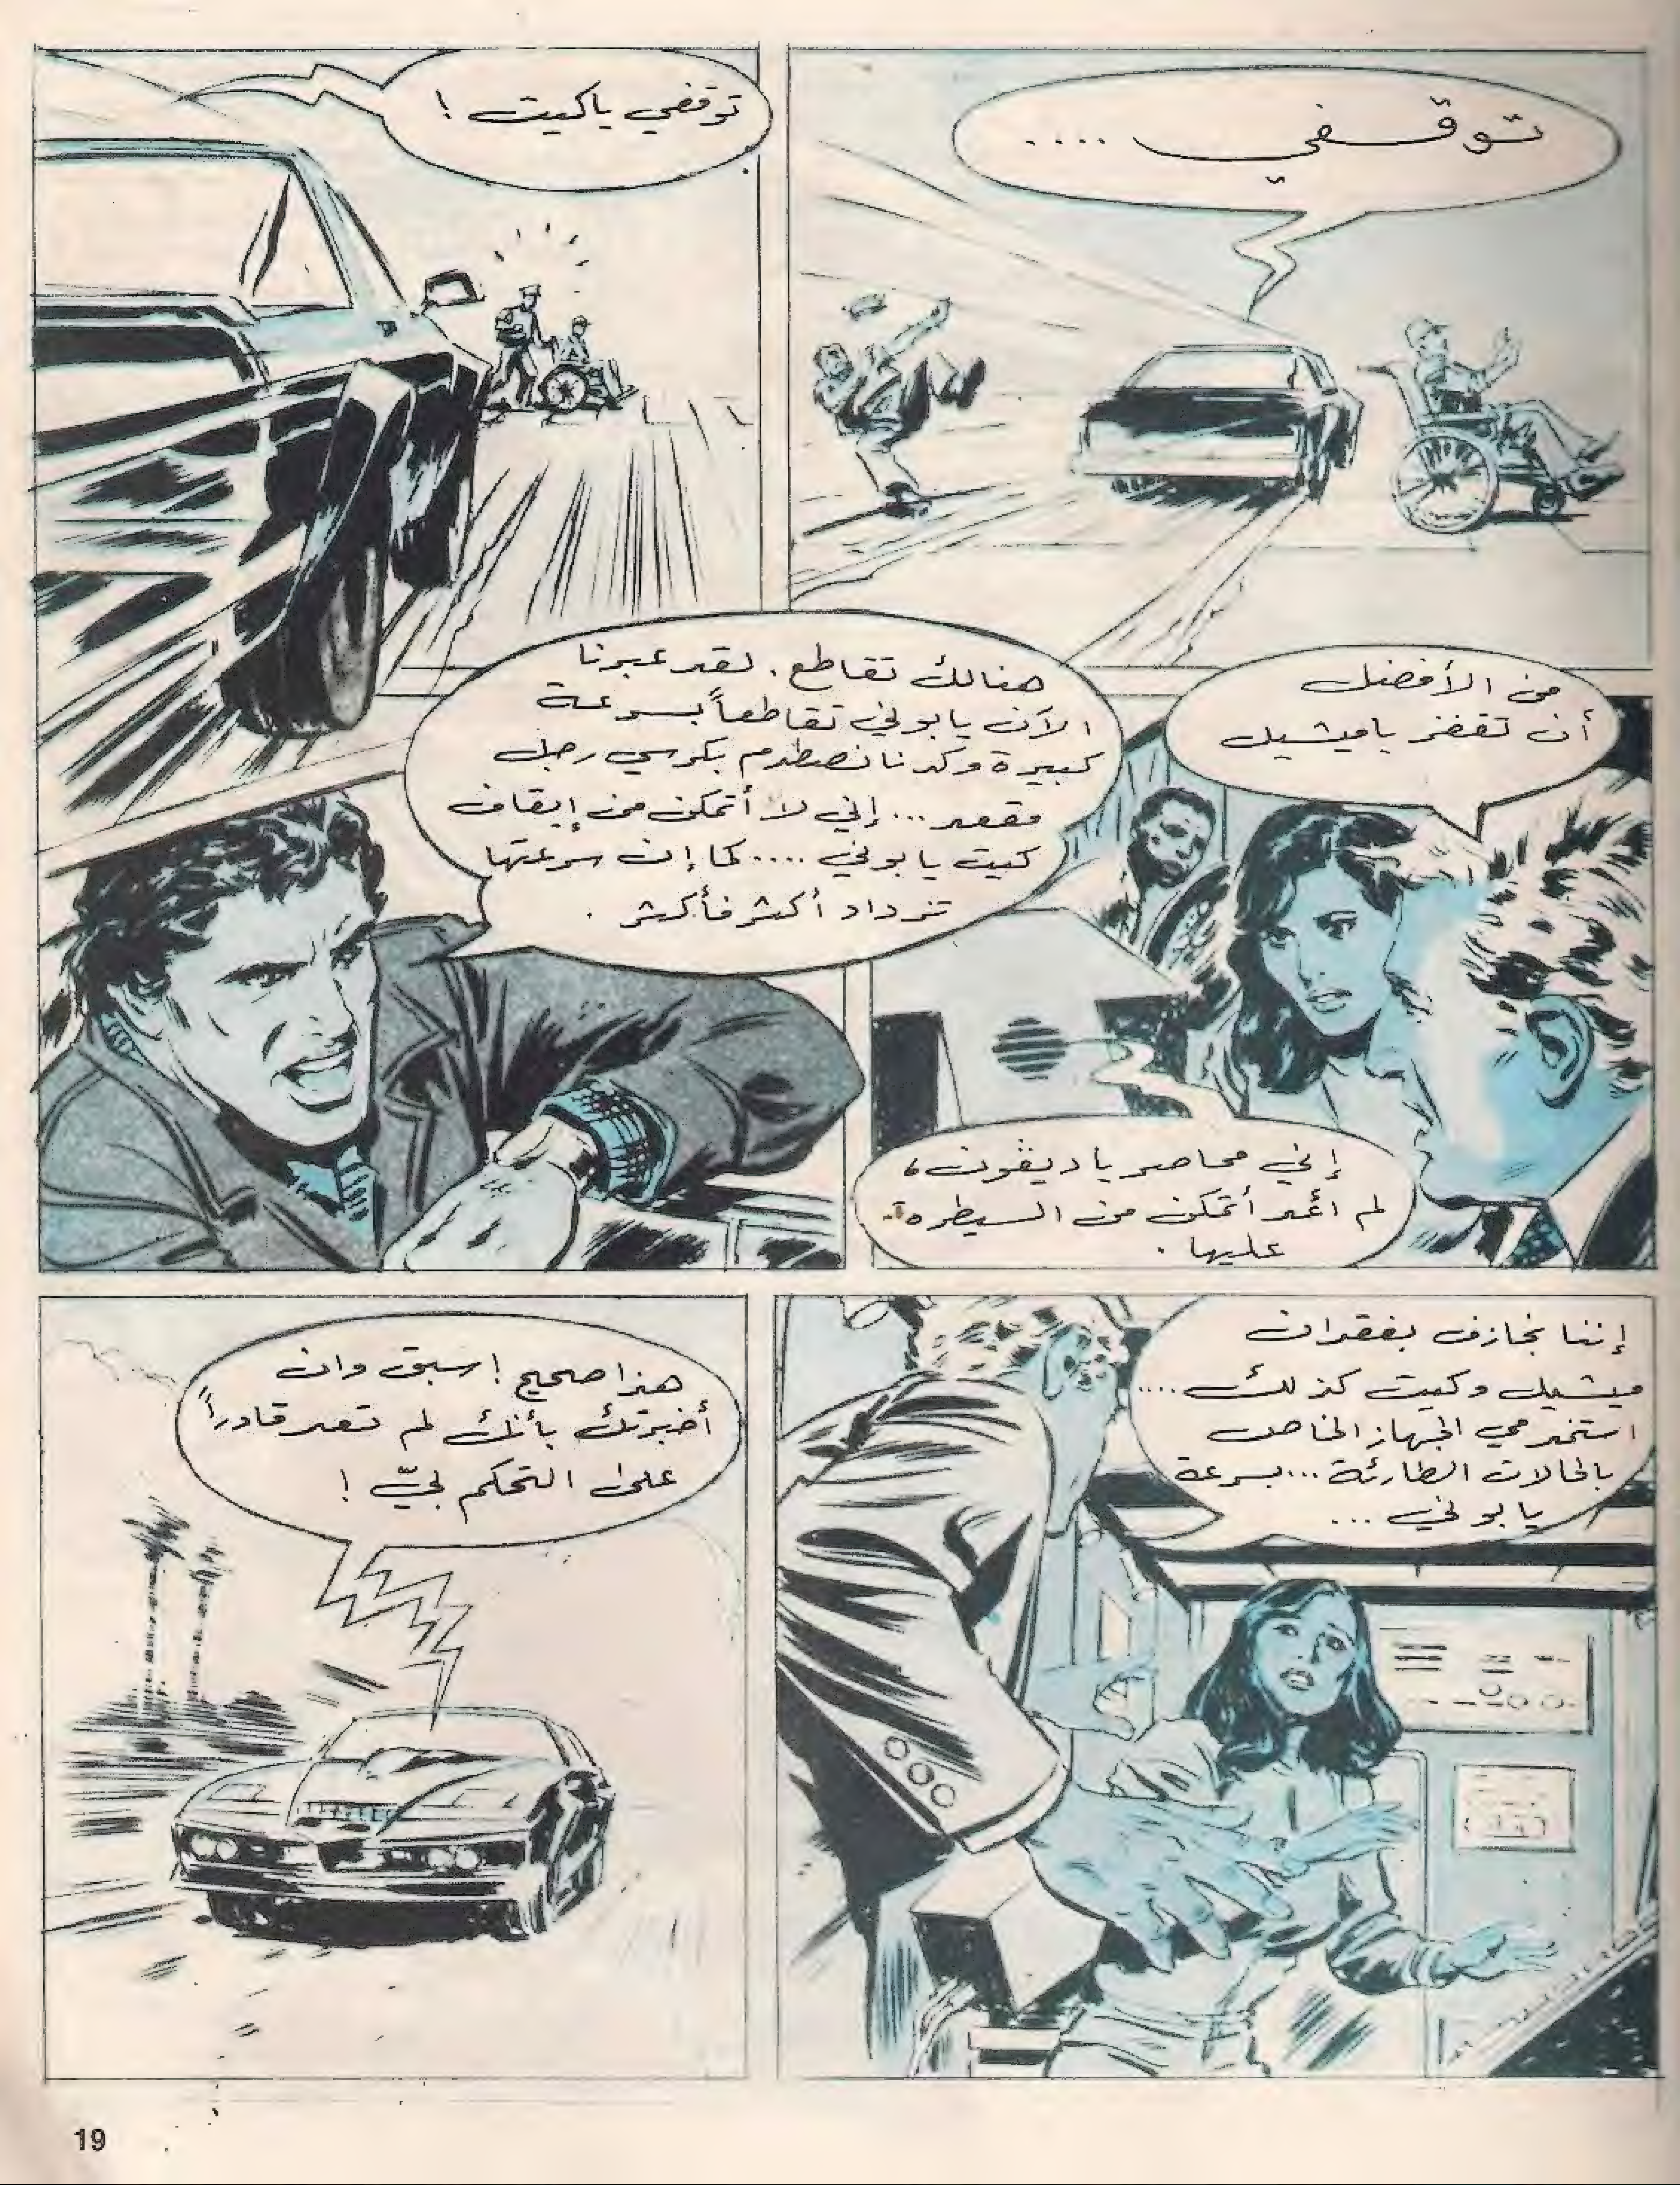 توقّفي ....
توقفي ياكيت !
من الأفضل
أن تقفز ياميشيل
إني محاصر ياديڤون،
لم أعد أتمكن من السيطرة
عليها .
هنالك تقاطع . لقد عبرنا
الآن يابوني تقاطعاً بسرعة
كبيرة وكدنا نصطدم بكرسي رجل
مقعد ... إني لا أتمكن من إيقاف
كيت يابوني .... كما إن سرعتها
تزداد أكثر فأكثر .
إننا نجازف بفقدان
ميشيل وكيت كذلك ....
استخدمي الجهاز الخاص
بالحالات الطارئة ... بسرعة
يابوني ...
هذا صحيح ! سبق وان
أخبرتك بأنك لم تعد قادراً
على التحكم بيّ !
19